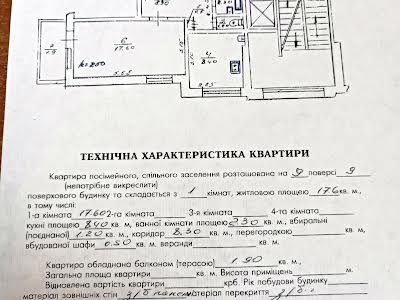 6
17.60
h=2.50
5.62
4
8.40
2.85
ТЕХНІЧНА ХАРАКТЕРИСТИКА КВАРТИРИ
Квартира посімейного, спільного заселення розташована на 9 поверсі 9
(непотрібне викреслити)
поверхового будинку та складається з 1 кімнат, житловою площею 17.6 кв. м.,
в тому числі:
1-а кімната 17.60 2-га кімната 3-я кімната 4-та кімната
кухні площею 8.40 кв. м, ванної кімнати площею 2.30 кв. м, вбиральні
(поєднаної) 1.20 кв. м., коридор 8.30 кв. м., перегородкою кв. м,
вбудованої шафи 0.50 кв. м. веранди кв. м.
Квартира обладнана балконом (терасою) 1.90 кв. м.
Загальна площа квартири кв. м. Висота приміщень м.
Відновлена вартість квартири крб. Рік побудови будинку
матеріал зовнішніх стін з/б панел матеріал перекриття з/б